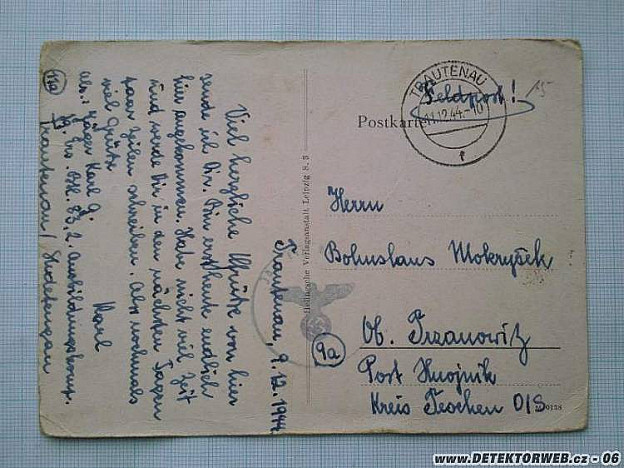 Postkarte
TRAUTENAU
11.12.44.-10
Feldpost!
15
Herrn
Bohuslaus Mokryšek
Ob. Trzanowitz
Post Hnojnik
Kreis Teschen O/S
9a
Trautenau, 9.12.1944
Viel herzliche Grüße von hier
sende ich Dir. Bin erst heute endlich
hier angekommen. Habe nicht viel Zeit
und werde Dir in den nächsten Tagen
paar Zeilen schreiben. Also nochmals
viel Grüße
Karl
11a
Abs. Jäger Karl
83, 2. Ausbildungskomp.
Trautenau / Sudetengau
Verlagsanstalt, Leipzig
www.DETEKTORWEB.cz - 06